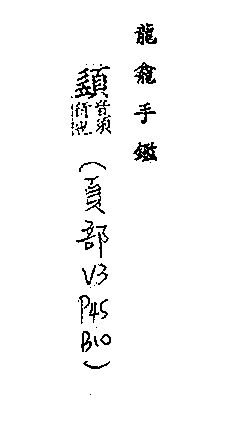 龍龕手鑑
音須待也(頁部V3P45B10)